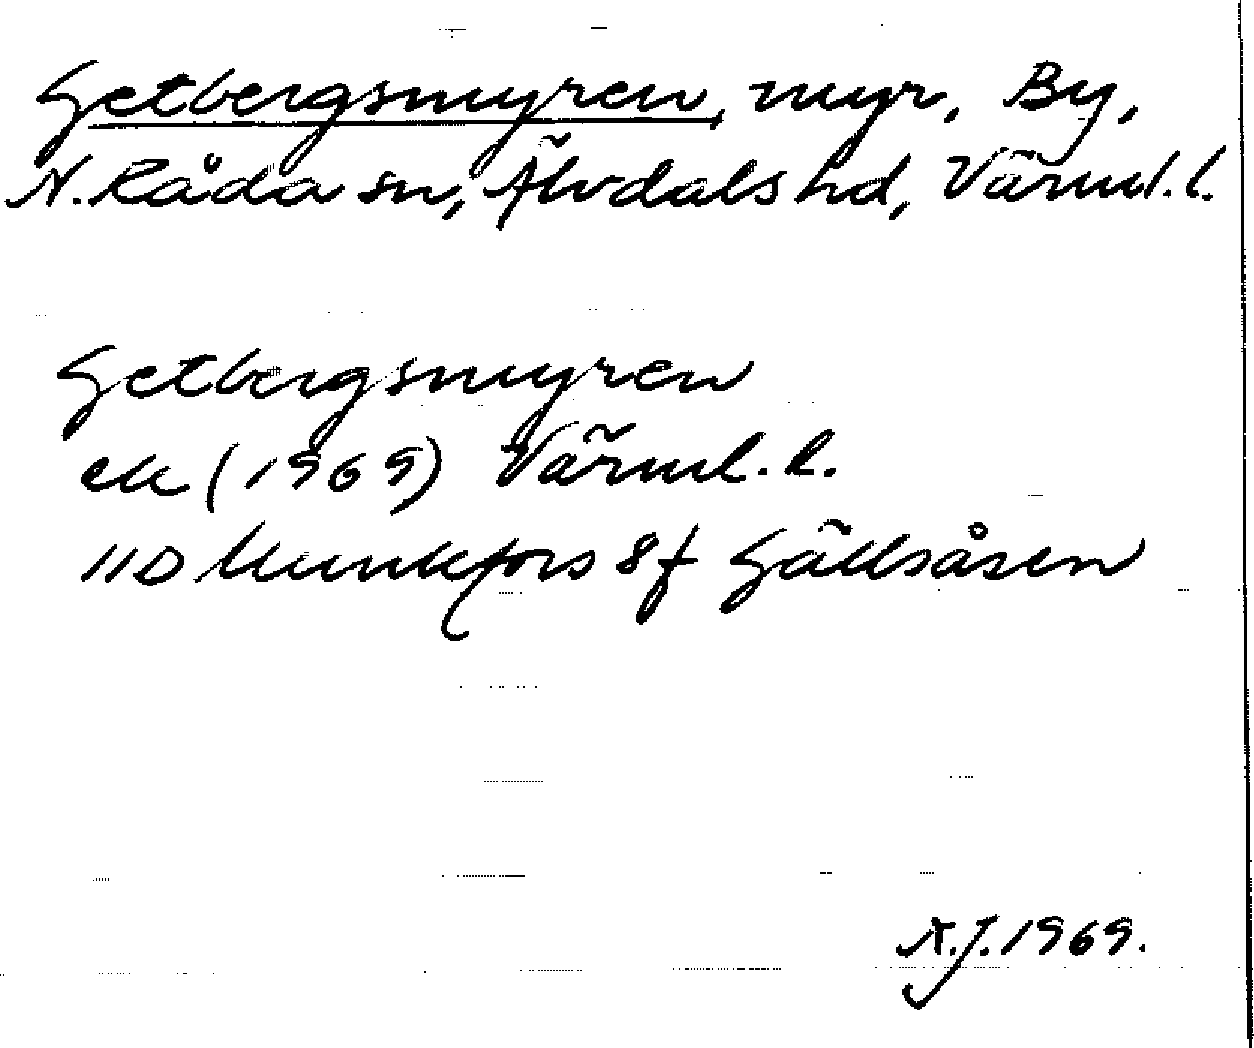 Getbergsmyren, myr, By,
N. Råda sn, Älvdals hd, Värml. l.
Getbergsmyren
ek (1969) Värml. l.
11D Munkfors 8f Gällsåsen
A.J. 1969.